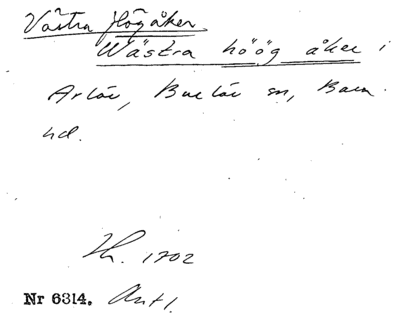 Västra Högåker
Wästra höög åker i
Arlöv, Burlöv sn, Bara
hd.
Lh. 1702
Nr 6314. Ant 1.